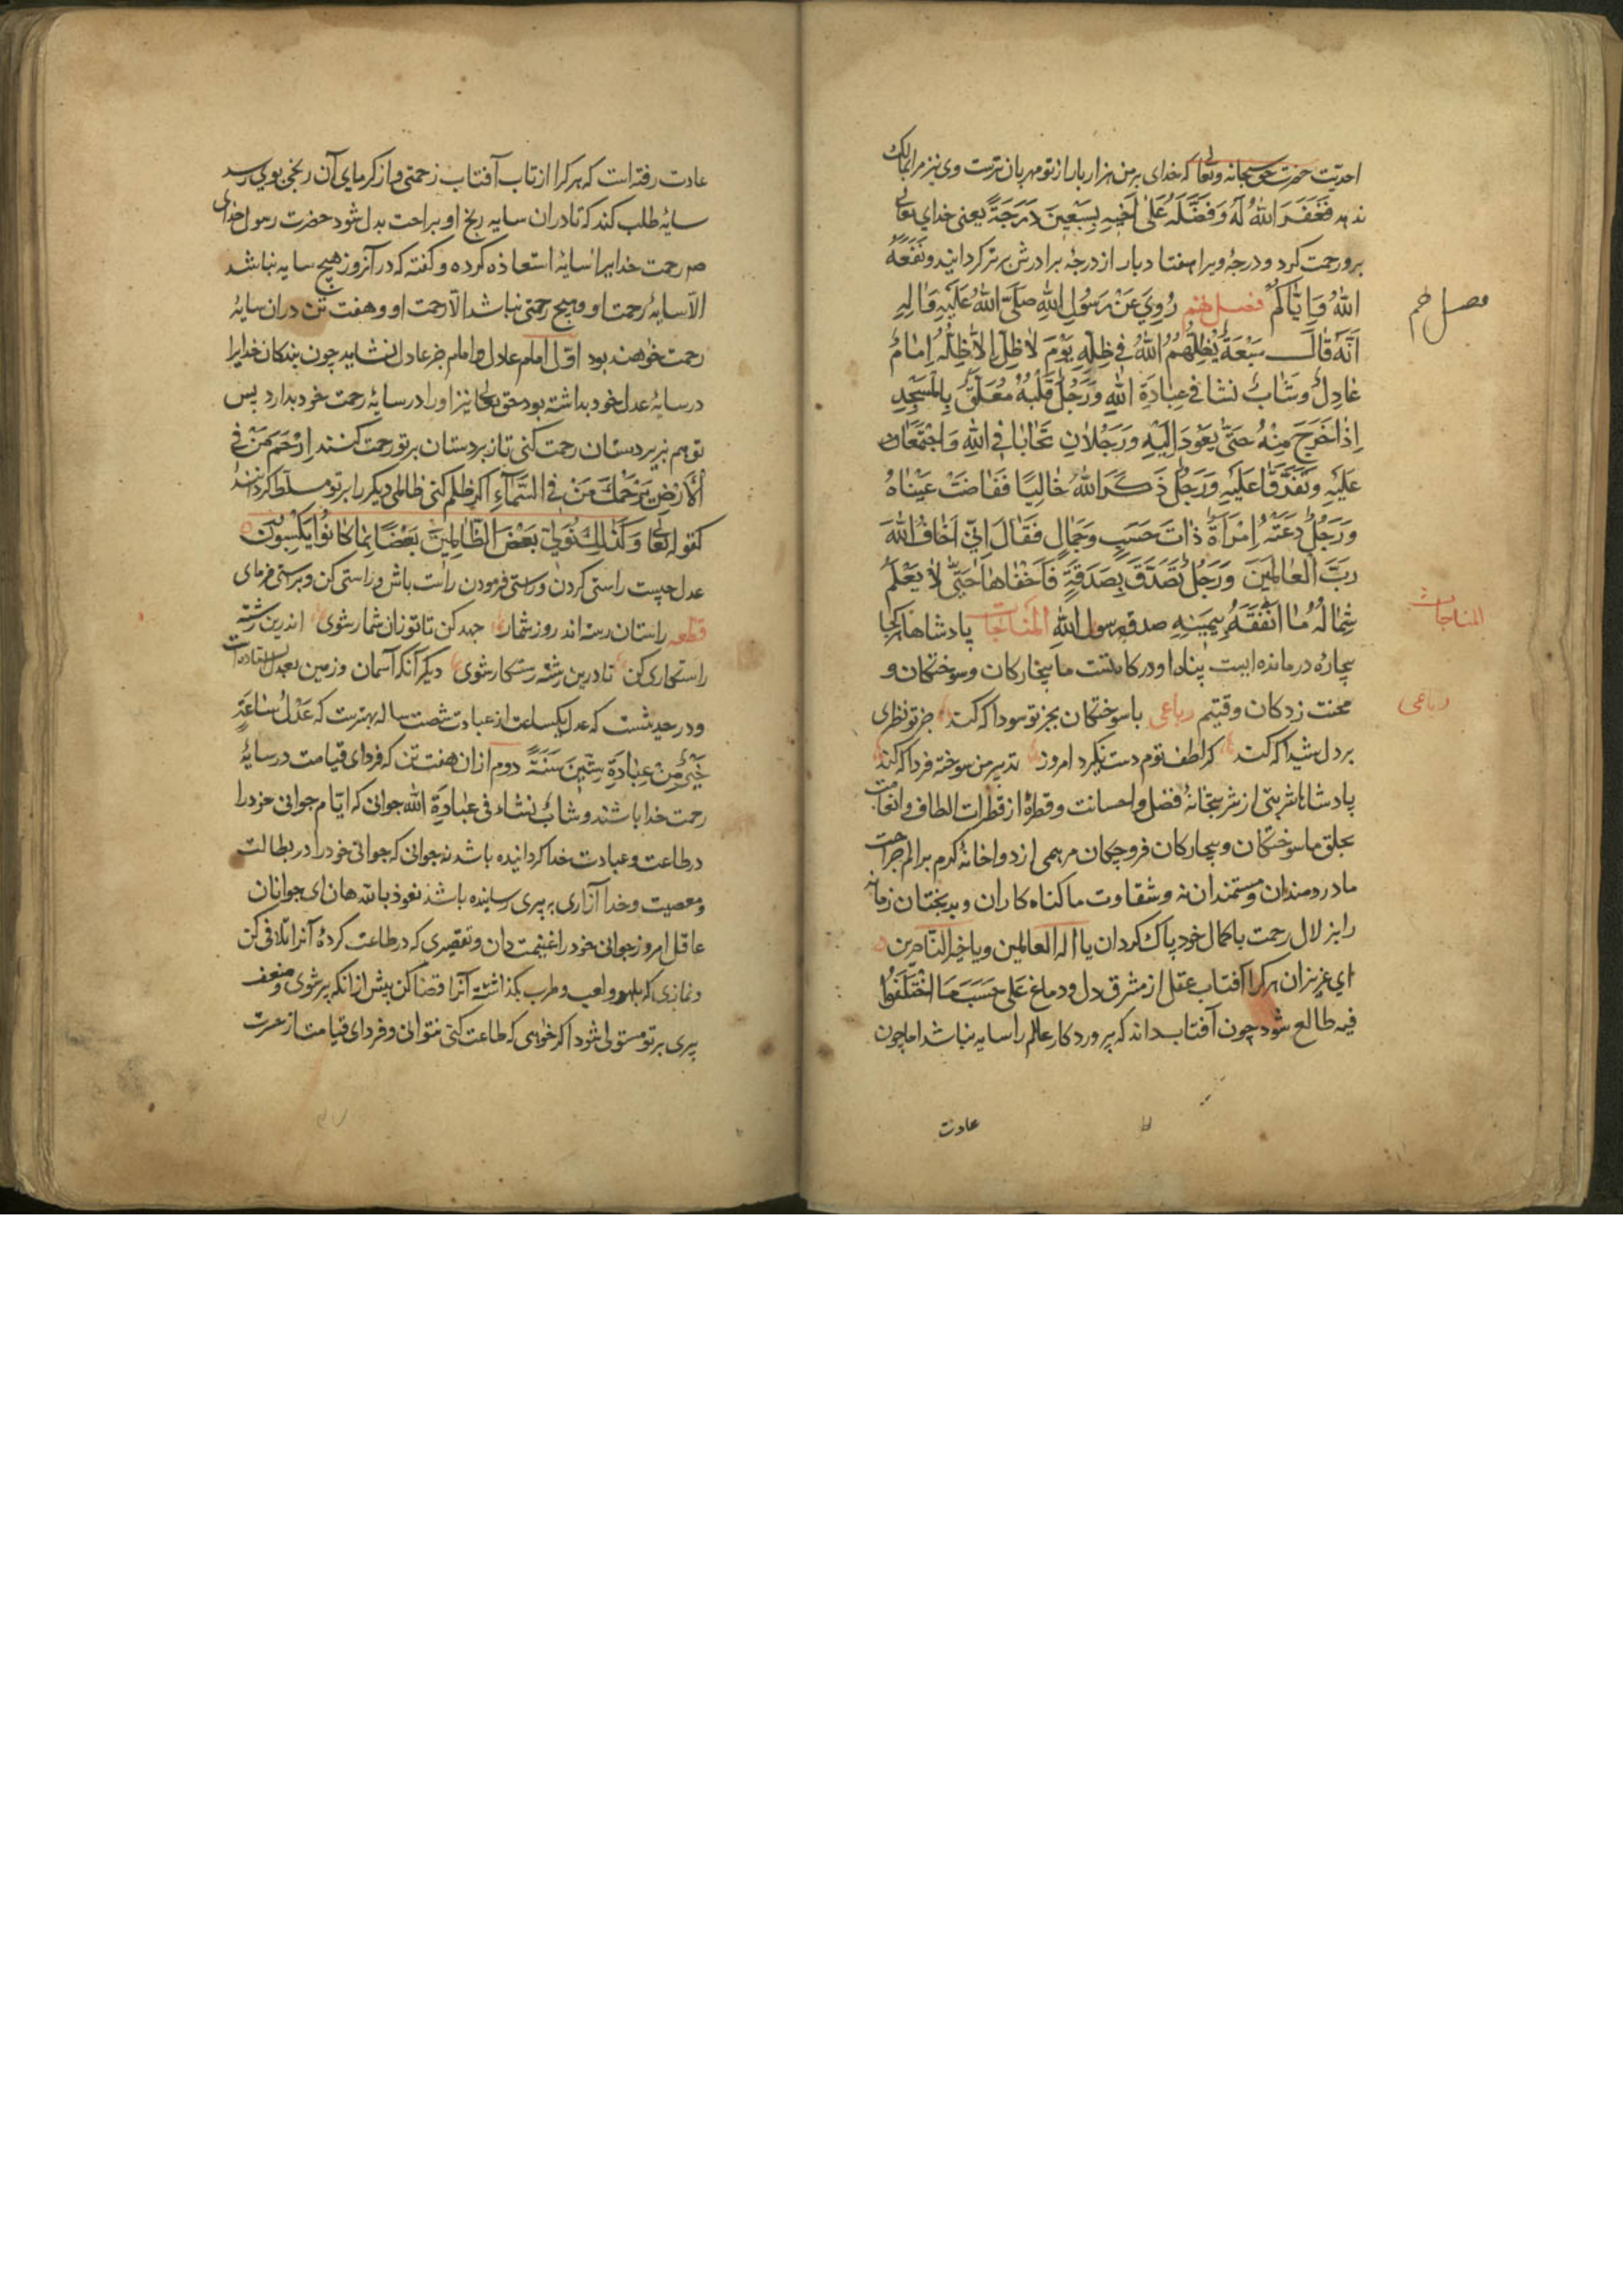 احدیت حضرت حق سبحانه وتعالی که خدای بر من هزار بار از تو مهربان ترست وی نیز مرا بمالک
ندهد فَغَفَرَ اللهُ لَهُ وَفَضَّلَهُ عَلٰی اَخیهِ بِسَبْعینَ دَرَجَةً یعنی خدای تعالی
برو رحمت کرد و درجۀ ویرا هفتاد بار از درجۀ برادرش برتر کردانید ونَفَعَهُ
اللهُ وَاِیّٰاکُمْ فصل نهم رُوِیَ عَنْ رَسُولِ اللهِ صَلَّی اللهُ عَلَیْهِ وَاٰلِهِ
اَنَّهُ قٰالَ سَبْعَةٌ یُظِلُّهُمُ اللهُ فی ظِلِّهِ یَوْمَ لاٰ ظِلَّ اِلاّٰ ظِلُّهُ اِمٰامٌ
عٰادِلٌ وَشٰابٌّ نشا فی عِبٰادَةِ اللهِ وَرَجُلٌ قَلْبُهُ مُعَلَّقٌ بِالْمَسْجِدِ
اِذٰا خَرَجَ مِنْهُ حَتّٰی یَعُودَ اِلَیْهِ وَرَجُلاٰنِ تَحٰابّٰا فِی اللهِ وَاجْتَمَعٰا
عَلَیْهِ وَتَفَرَّقٰا عَلَیْهِ وَرَجُلٌ ذَکَرَ اللهَ خٰالِیًا فَفٰاضَتْ عَیْنٰاهُ
وَرَجُلٌ دَعَتْهُ اِمْرَاَةٌ ذٰاتَ حَسَبٍ وَجَمٰالٍ فَقٰالَ اِنّی اَخٰافُ اللهَ
رَبَّ الْعٰالَمینَ وَرَجُلٌ تَصَدَّقَ بِصَدَقَةٍ فَاَخْفٰاهٰا حَتّٰی لاٰ یَعْلَمُ
شِمٰالُهُ مٰا اَنْفَقَهُ بِیَمینِهِ صدق رسول الله المناجات پادشاها هر کجا
بیچارۀ درمانده ایست پناه او درکاه تست ما بیچارکان وسوختکان و
محنت زدکان وقتیم رباعی با سوختکان بجز تو سودا که کند جز تو نظری
بر دل شیدا که کند کر لطف توم دست نکیرد امروز تدبیر من سوخته فردا که کند
پادشاها شربتی از شربتخانۀ فضل واحسانت وقطرۀ از قطرات الطاف وانعامت
بحلق ما سوختکان وبیچارکان فرو چکان مرهمی از دواخانۀ کرم بر الم جراحت
ما دردمندان ومستمندان نه وشقاوت ما کناه کاران وبدبختان زمانه
را بزلال رحمت با کمال خود پاک کردان یا اله العالمین ویا خیر الناصرین
ای عزیزان هر کرا آفتاب عقل از مشرق دل ودماغ عَلٰی حَسَبِ مَا اخْتَلَفُوا
فیه طالع شود چون آفتاب داند که پروردکار عالم را سایه نباشد اما چون
عادت
فصل نهم
المناجات
رباعی
عادت رفته است که هر کرا از تاب آفتاب زحمتی واز کرمای آن رنجی بوی رسد
سایۀ طلب کند که تا در آن سایه رنج او براحت بدل شود حضرت رسول خدای
ص رحمت خدایرا سایۀ استعاذه کرده وکفته که در آنروز هیچ سایه نباشد
الاّ سایۀ رحمت او وهیچ رحمتی نباشد الاّ رحمت او وهفت تن در آن سایۀ
رحمت خواهند بود اوّل امام عادل وامام جز عادل نشاید چون بندکان خدایرا
در سایۀ عدل خود بداشته بود حق تعالی نیز او را در سایۀ رحمت خود بدارد پس
تو هم بزیردستان رحمت کنی تا زبردستان بر تو رحمت کنند اِرْحَمْ مَنْ فِی
الْاَرْضِ یَرْحَمْکَ مَنْ فِی السَّمٰآءِ اکر ظلم کنی ظالمی دیکر را بر تو مسلّط کردانند
کقوله تعالی وَکَذٰلِکَ نُوَلّی بَعْضَ الظّٰالِمینَ بَعْضًا بِمٰا کٰانُوا یَکْسِبُونَ
عدل چیست راستی کردن وراستی فرمودن راست باش وراستی کن وبراستی فرمای
قطعه راستان رسته اند روز شمار جهد کن تا تو زان شمار شوی اندرین رشته
راستکاری کن تا درین رشته رستکار شوی دیکر آنکه آسمان وزمین بعدل ایستاده است
ودر حدیثست که عدل یکساعت از عبادت شصت ساله بهترست که عَدْلُ سٰاعَةٍ
خَیْرٌ مِنْ عِبٰادَةِ سِتّینَ سَنَةً دوم از آن هفت تن که فردای قیامت در سایۀ
رحمت خدا باشند وشٰابٌّ نشاء فی عبٰادَةِ الله جوانی که ایّام جوانی خود را
در طاعت وعبادت خدا کردانیده باشد نه جوانی که جوانی خود را در بطالت
ومعصیت وخدا آزاری به پیری رسانیده باشد نعوذ بالله هان ای جوانان
عاقل امروز جوانی خود را غنیمت دان وتقصیری که در طاعت کردۀ آنرا تلافی کن
ونمازی که بلهو ولعب وطرب بگذاشتۀ آنرا قضا کن پیش از آنکه پیر شوی وضعف
پیری بر تو مستولی شود اکر خواهی که طاعت کنی نتوانی وفردای قیامت از حسرت